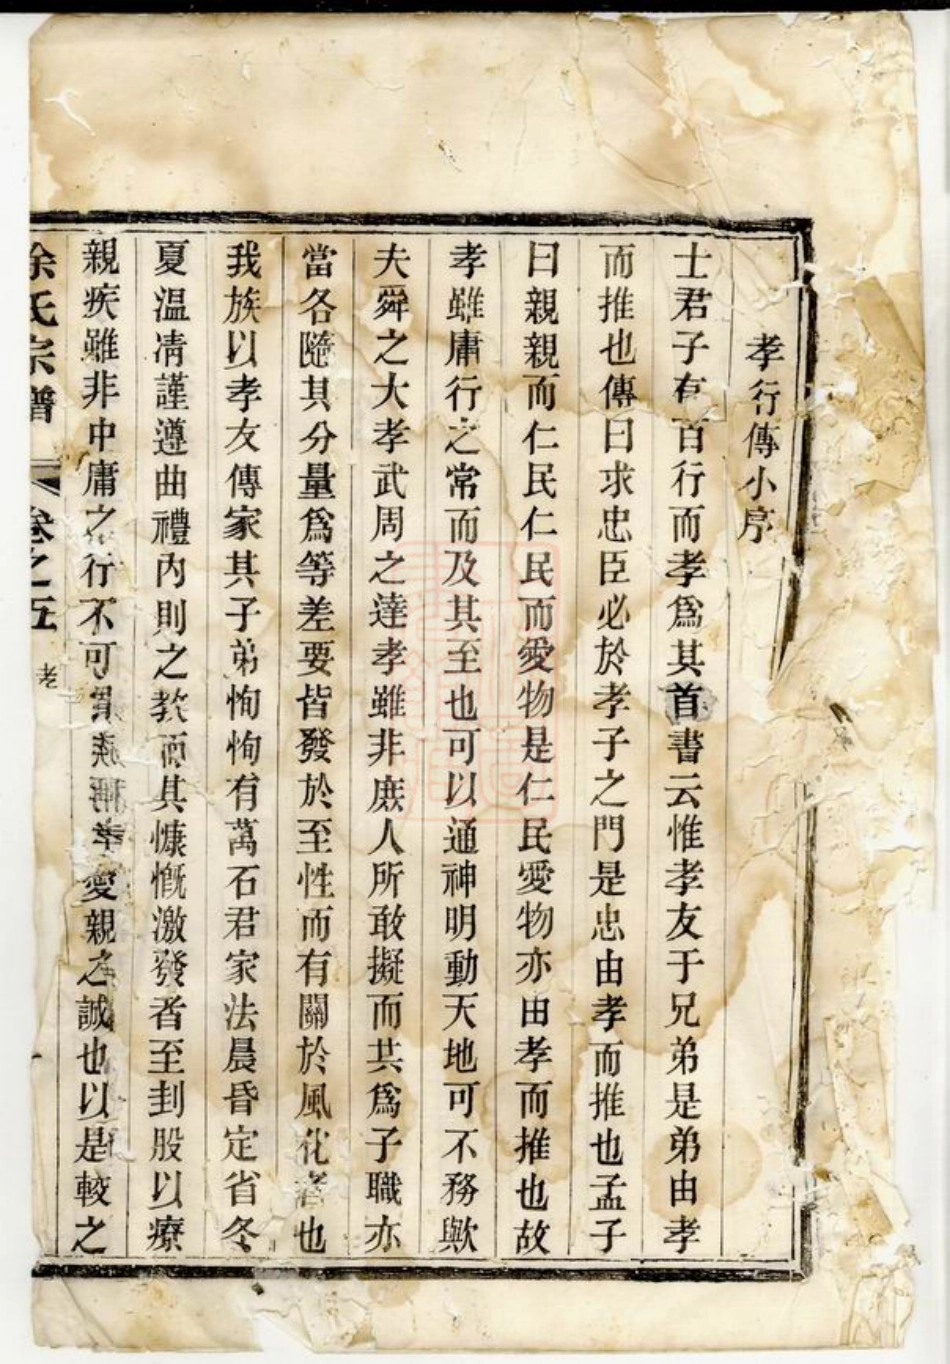 孝行傳小序
士君子有百行而孝爲其首書云惟孝友于兄弟是弟由孝
而推也傳曰求忠臣必於孝子之門是忠由孝而推也孟子
曰親親而仁民仁民而愛物是仁民愛物亦由孝而推也故
孝雖庸行之常而及其至也可以通神明動天地可不務歟
夫舜之大孝武周之達孝雖非庶人所敢擬而其爲子職亦
當各隨其分量爲等差要皆發於至性而有關於風化者也
我族以孝友傳家其子弟恂恂有萬石君家法晨昏定省冬
夏温凊謹遵曲禮內則之教而其慷慨激發者至刲股以療
親疾雖非中庸之行不可愛親之誠也以是較之
徐氏宗譜 卷之五